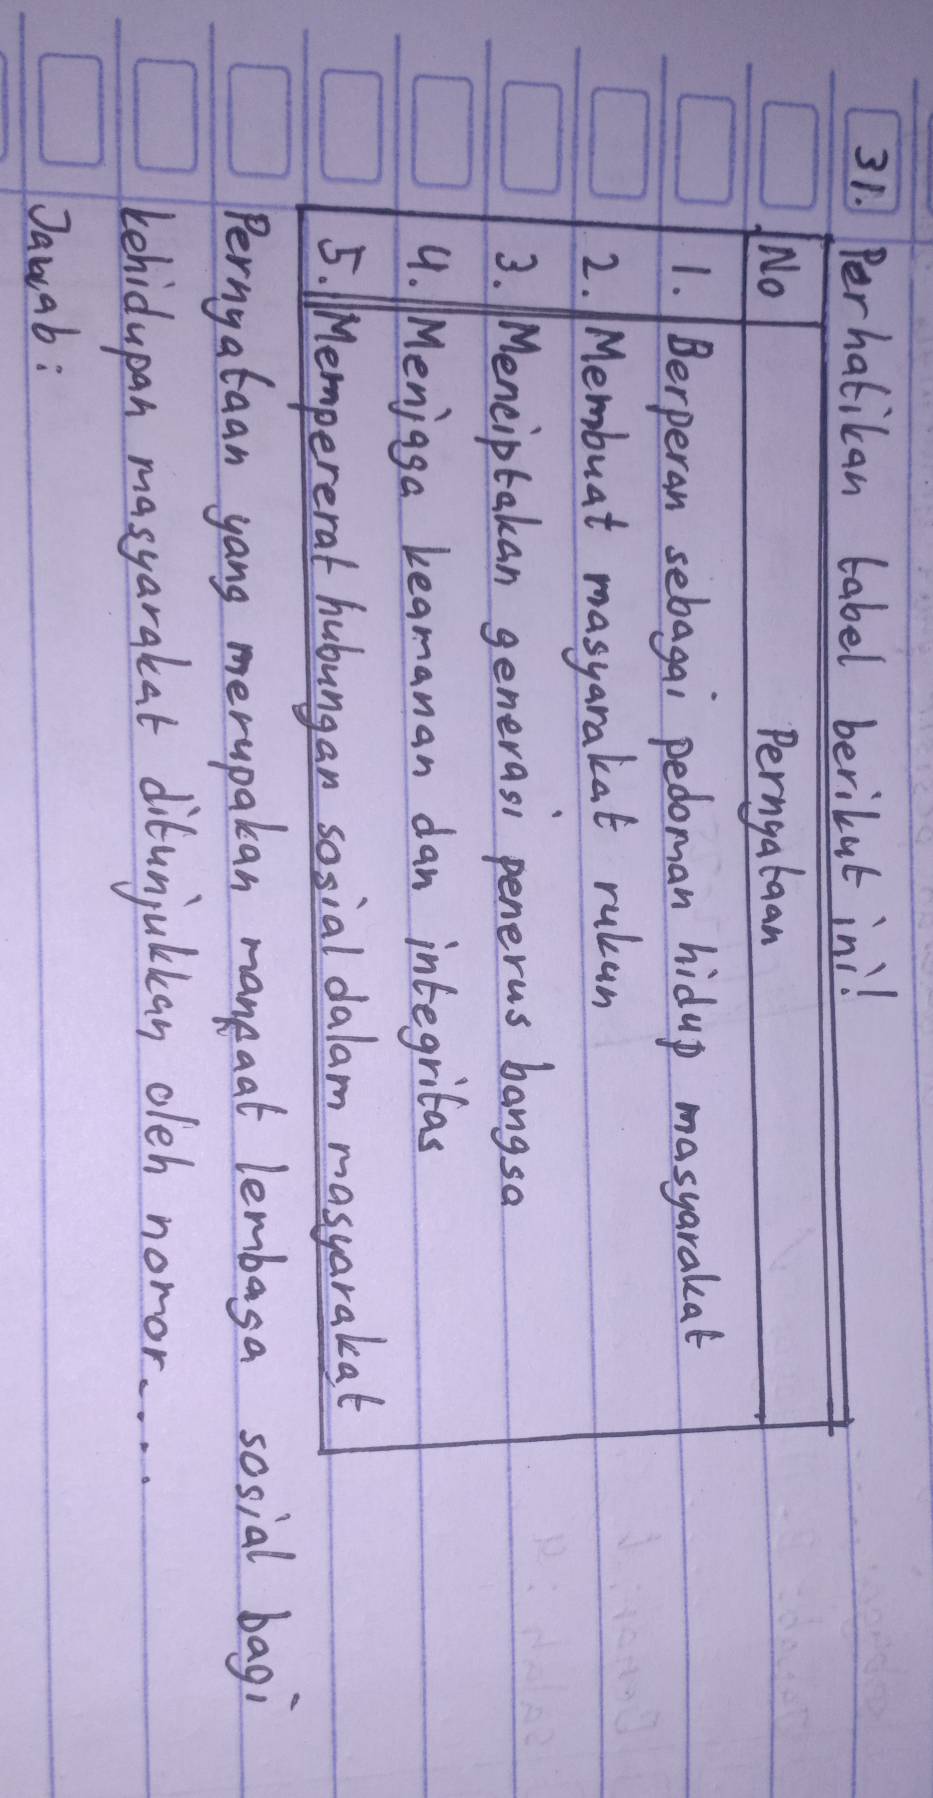 31. Perhatikan tabel berikut ini!
No Pernyataan
1. Berperan sebagai pedoman hidup masyarakat
2. Membuat masyarakat rukun
3. Menciptakan generasi penerus bangsa
4. Menjaga keamanan dan integritas
5. Mempererat hubungan sosial dalam masyarakat
Pernyataan yang merupakan manfaat lembaga sosial bagi
kehidupan masyarakat ditunjukkan oleh nomor....
Jawab: